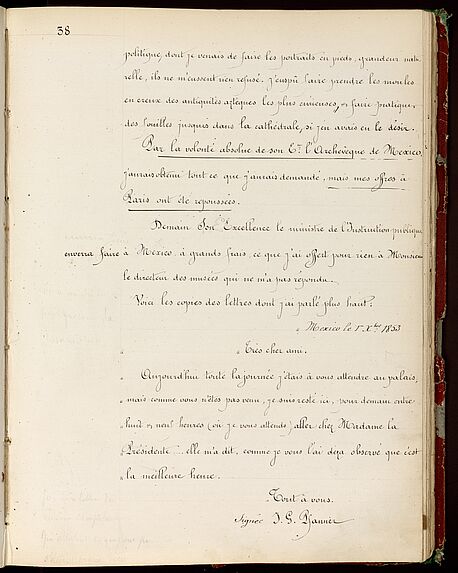 38
politique, dont je venais de faire les portraits en pieds, grandeur natu
relle, ils ne m'eussent rien refusé. J'eus pu faire prendre les moules
en creux des antiquités aztèques les plus curieuses, et faire pratiquer
des fouilles jusques dans la cathédrale, si j'en avais eu le désir.
Par la volonté absolue de son Ece l'Archevêque de Mexico,
j'aurais obtenu tout ce que j'aurais demandé, mais mes offres à
Paris ont été repoussées.
Demain Son Excellence le ministre de l'Instruction publique
enverra faire à Mexico à grands frais, ce que j'ai offert pour rien à Monsieur
le directeur des musées qui ne m'a pas répondu.
Voici les copies des lettres dont j'ai parlé plus haut.
" Mexico le 1er Xbre 1853
" Très cher ami.
" Aujourd'hui toute la journée j'étais à vous attendre au palais,
" mais comme vous n'êtes pas venu, je suis resté ici, pour demain entre
" huit et neuf heures (où je vous attends) aller chez Madame la
" Présidente... elle m'a dit, comme je vous l'ai deja observé que c'est
" la meilleure heure.
" Tout à vous.
Signée J. G.